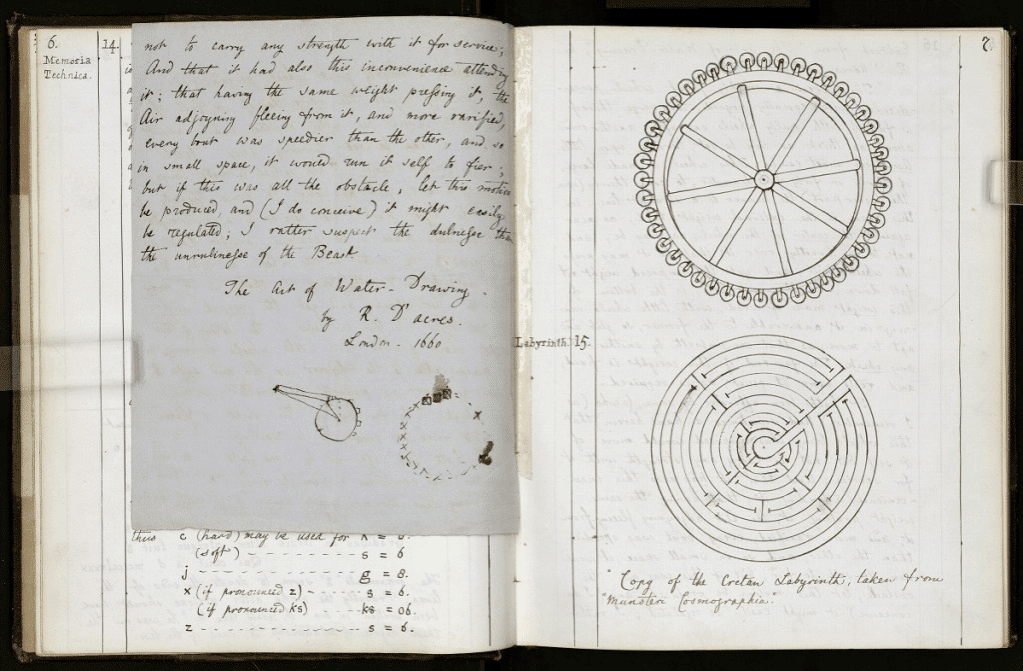 6.
14.
Memoria
Technica.
not to carry any strength with it for service;
And that it had also this inconvenience attending
it; that having the same weight pressing it, the
Air adjoyning fleeing from it, and more rarified,
every bout was speedier than the other, and so
in small space, it would run it self to fier;
but if this was all the obstacle, let this motion
be produced, and (I do conceive) it might easily
be regulated; I rather suspect the dulnesse than
the unrulinesse of the Beast
The Art of Water-Drawing.
by R. D'acres.
London. 1660
thus c (hard) may be used for k = 6.
(soft) - - - - - - s = 6
j - - - - - - g = 8.
x (if pronounced z) - - - s = 6.
(if pronounced ks) - - - ks = 06.
z - - - - - - s = 6.
7.
Labyrinth. 15.
"Copy of the Cretan Labyrinth, taken from
"Munsteri Cosmographia".